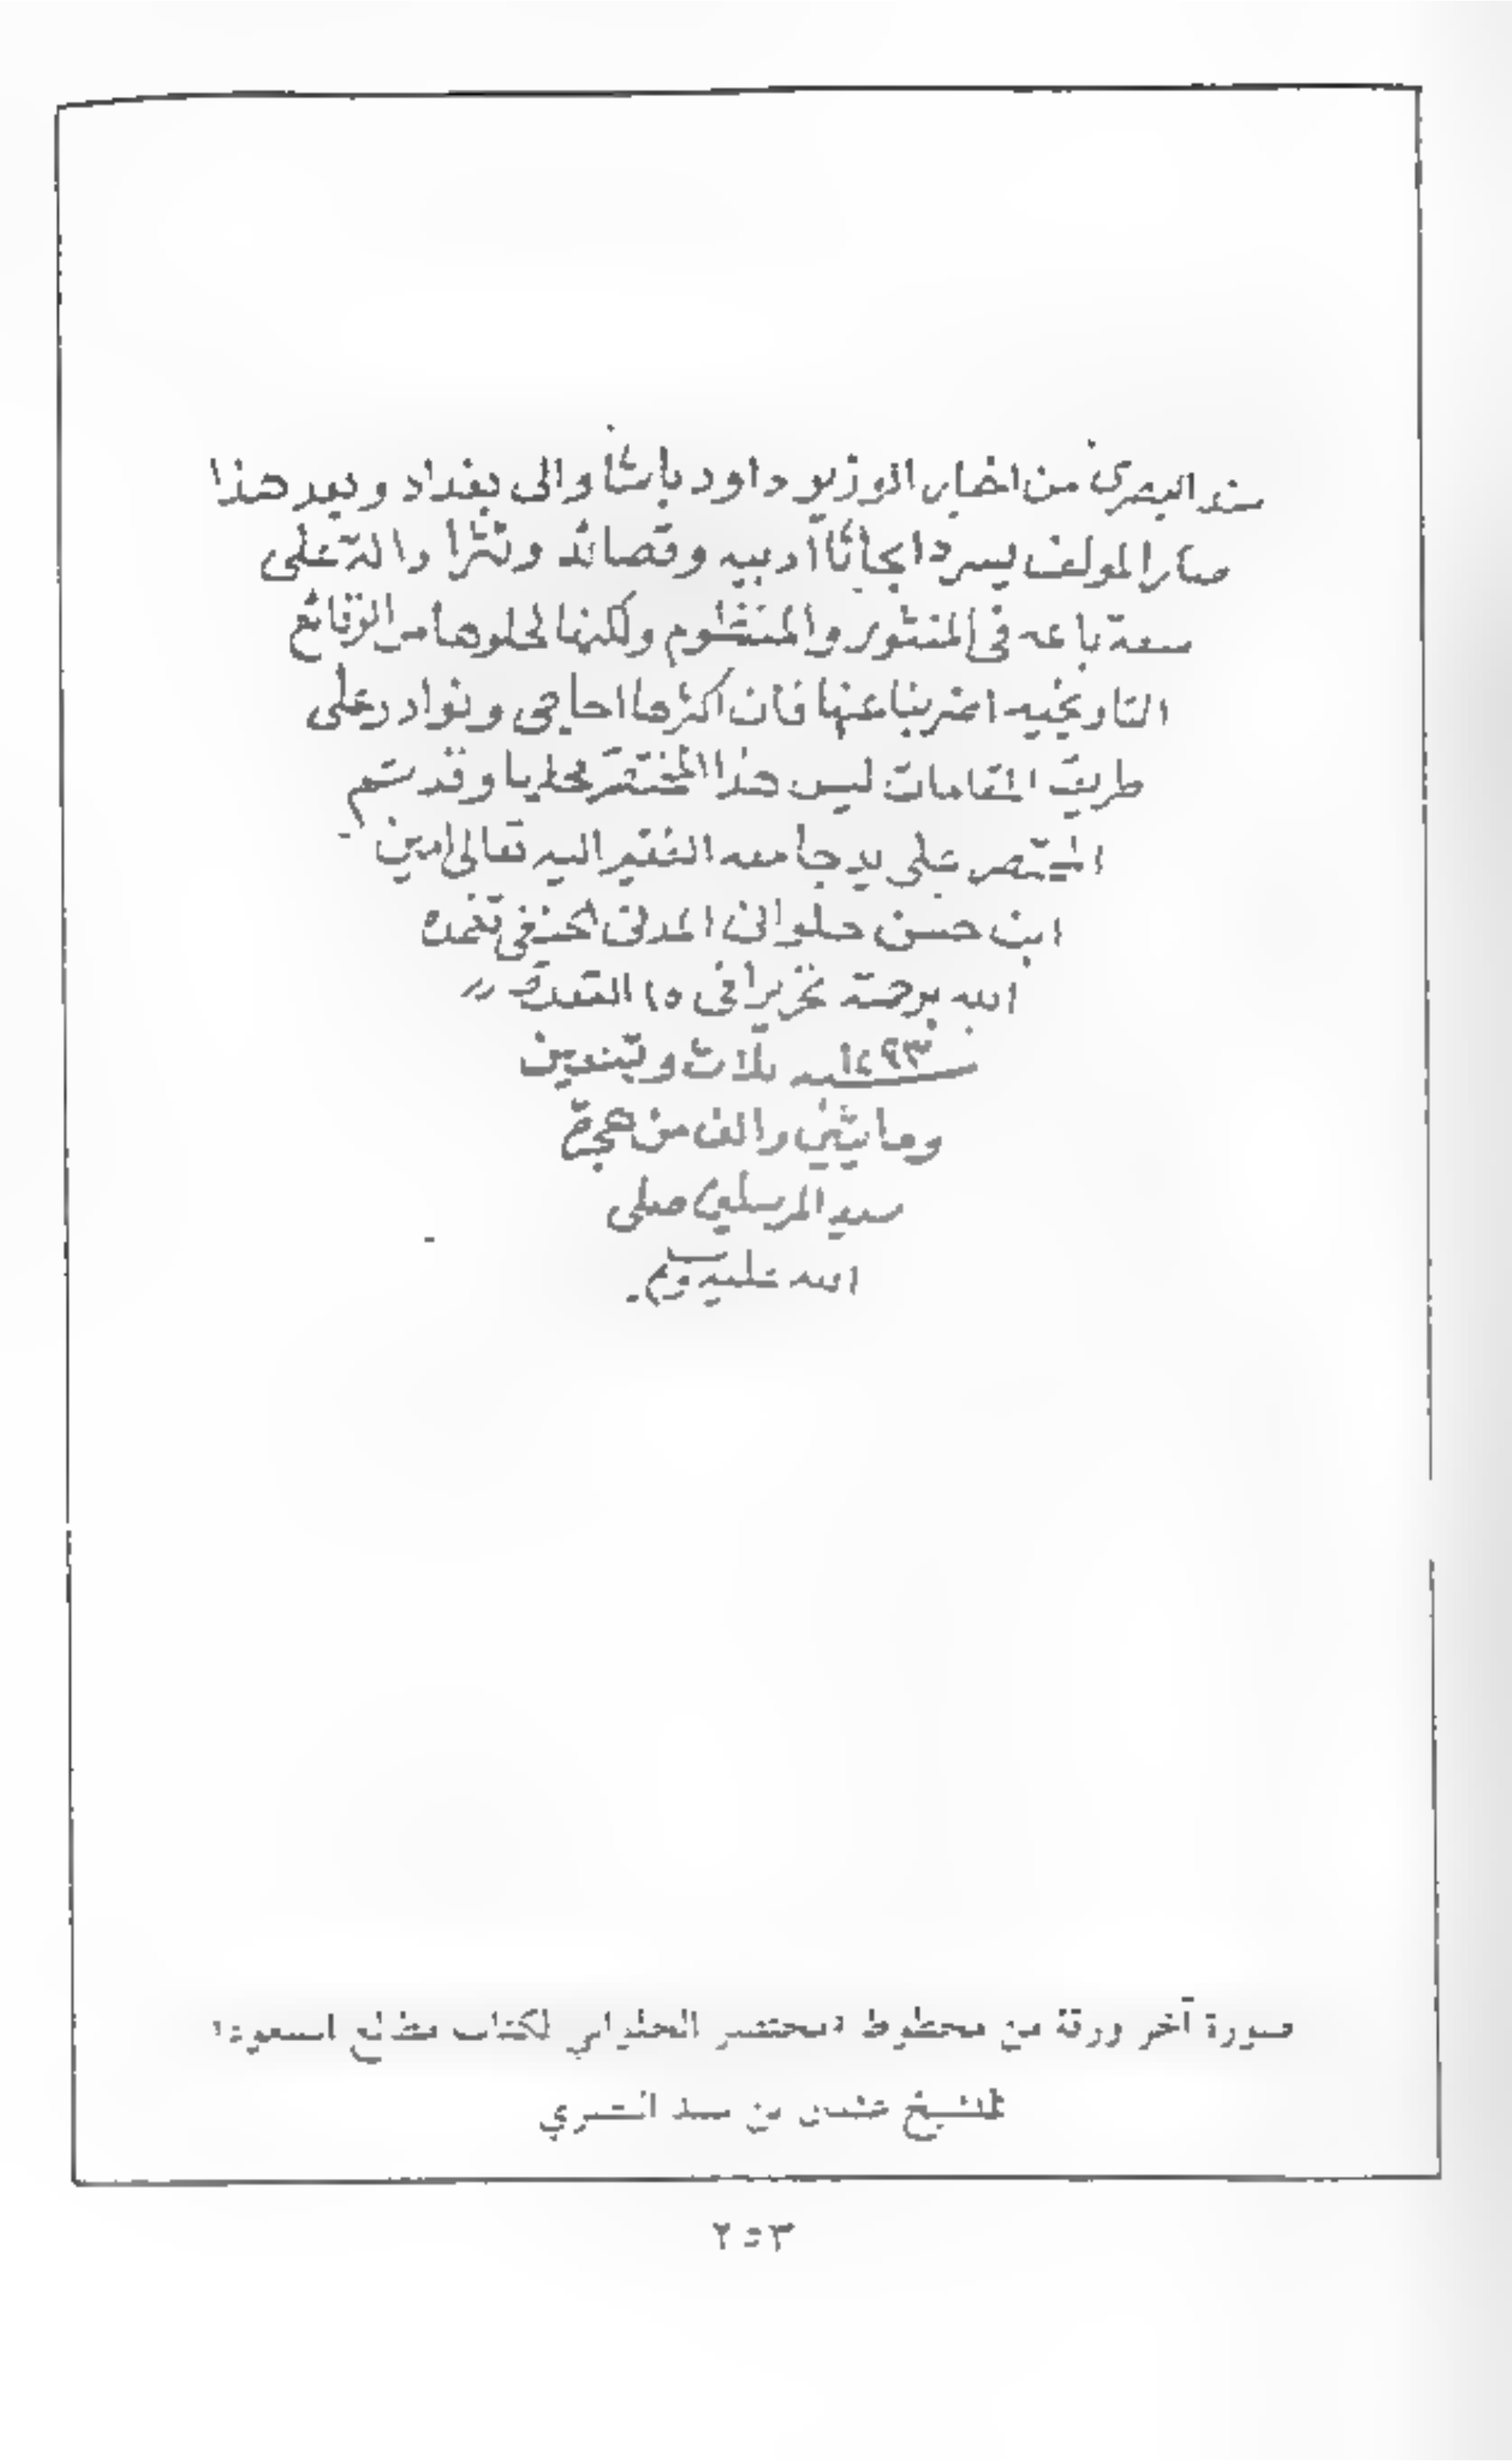 سند البصري من اخبار الوزير داود باشا والى بغداد وبعد هذا
صار المولف يسرد ابحاثا أدبيه وقصائد ونثرا دالة على
سعة باعه في المنثور والمنظوم ولكنها لخلوها من الوقائع
التاريخيه اضربنا عنها فان اكثرها احاجي ونوادر على
طريق المقامات ليس هذا المختصر محلها وقد تم
المختصر على يد جامعه الفقير اليه تعالى امين
ابن حسن حلوانى المدنى الحنفي تغمده
الله برحمته تحريرا في ١٥ القعدة
١٢٩٣ـنه ثلاث وتسعين
ومائتين والف من هجرة
سيد المرسلين صلى
الله عليه وسلم
صورة آخر ورقة من مخطوط «مختصر الحلواني لكتاب مطالع السعود»
للشيخ عثمان بن سند البصري
٢٥٣